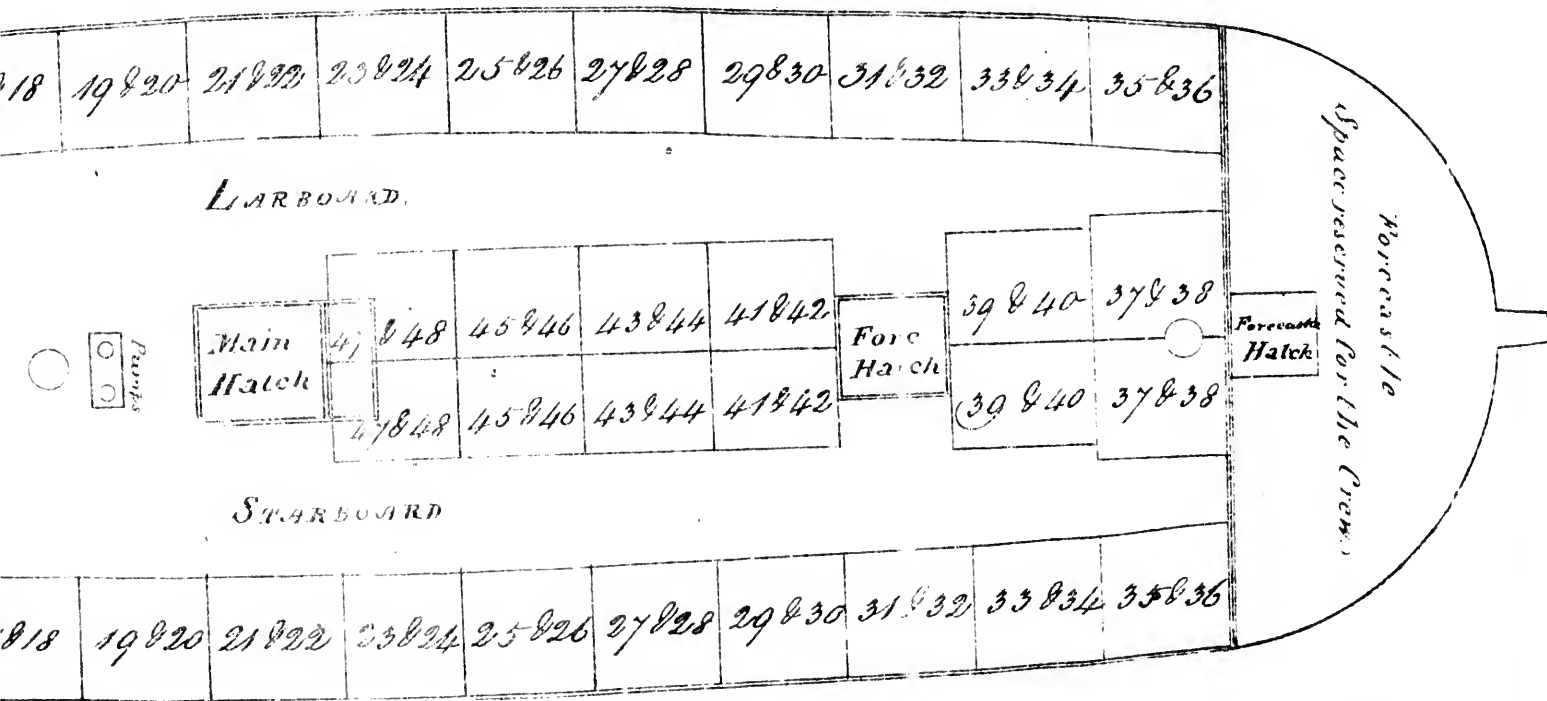 18 19&20 21&22 23&24 25&26 27&28 29&30 31&32 33&34 35&36
LARBOARD.
Pumps
Main
Hatch
47&48 45&46 43&44 41&42
Fore
Hatch
39&40 37&38
47&48 45&46 43&44 41&42
39&40 37&38
Forecastle
Hatch
Forecastle
Space reserved for the Crew.)
STARBOARD
&18 19&20 21&22 23&24 25&26 27&28 29&30 31&32 33&34 35&36